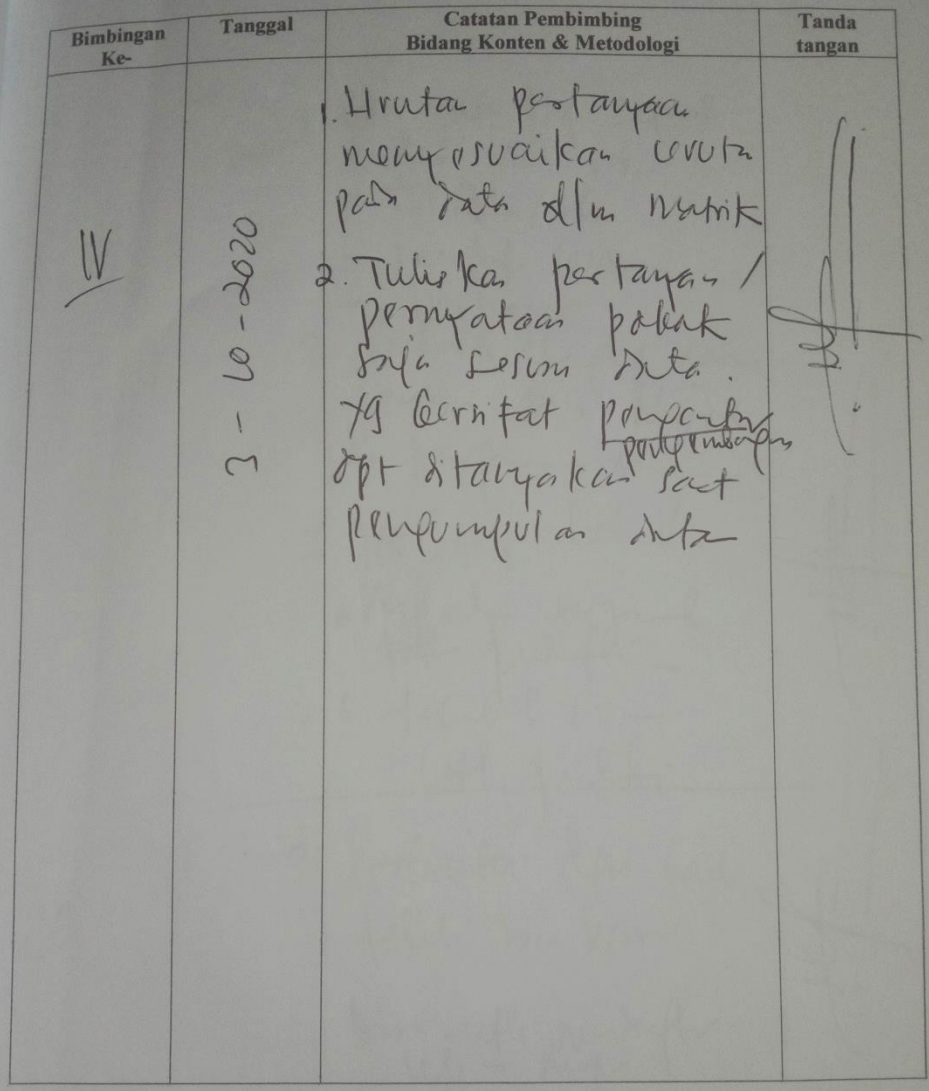 Bimbingan Ke-
Tanggal
Catatan Pembimbing
Bidang Konten & Metodologi
Tanda tangan
IV
3-10-2020
1. Urutan pertanyaan
menyesuaikan urutan
pada data dlm matrik
2. Tuliskan pertanyaan /
pernyataan pokok
saja sesuai data.
yg bersifat
pengembangan
dpt ditanyakan saat
pengumpulan data